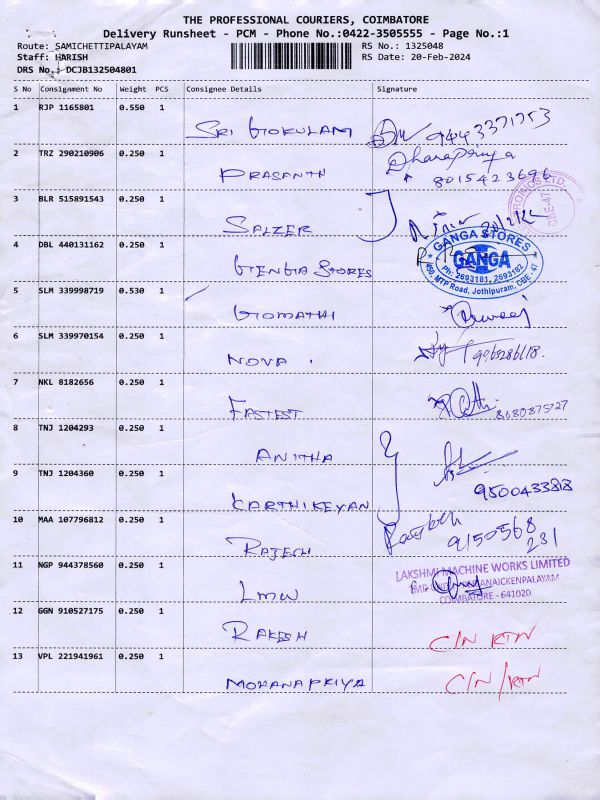 THE PROFESSIONAL COURIERS, COIMBATORE
Delivery Runsheet - PCM - Phone No.:0422-3505555 - Page No.:1
Route: SAMICHETTIPALAYAM RS No.: 1325048
Staff: HARISH RS Date: 20-Feb-2024
DRS No.: DCJB132504801
S No Consignment No Weight PCS Consignee Details Signature
1 RJP 1165801 0.550 1
SRI GOKULAM
2 TRZ 290210906 0.250 1 Dharapriya
PRASANTH 8015423696
3 BLR 515891543 0.250 1
SALZER
4 DBL 440131162 0.250 1 GANGA STORES
GENGA STORES GANGA
Ph: 2693181, 2693182
4/90, MTP Road, Jothipuram, CBE - 47
5 SLM 339998719 0.530 1
GOMATHI
6 SLM 339970154 0.250 1
NOVA
7 NKL 8182656 0.250 1
FASTEST 8680875727
8 TNJ 1204293 0.250 1
ANITHA
9 TNJ 1204360 0.250 1
KARTHIKEYAN 9500433818
10 MAA 107796812 0.250 1
RAJESH 9150568
231
11 NGP 944378560 0.250 1 LAKSHMI MACHINE WORKS LIMITED
LMW COIMBATORE - 641020
12 GGN 910527175 0.250 1
RAKESH C/N RTN
13 VPL 221941961 0.250 1
MOHANAPRIYA C/N/RTN